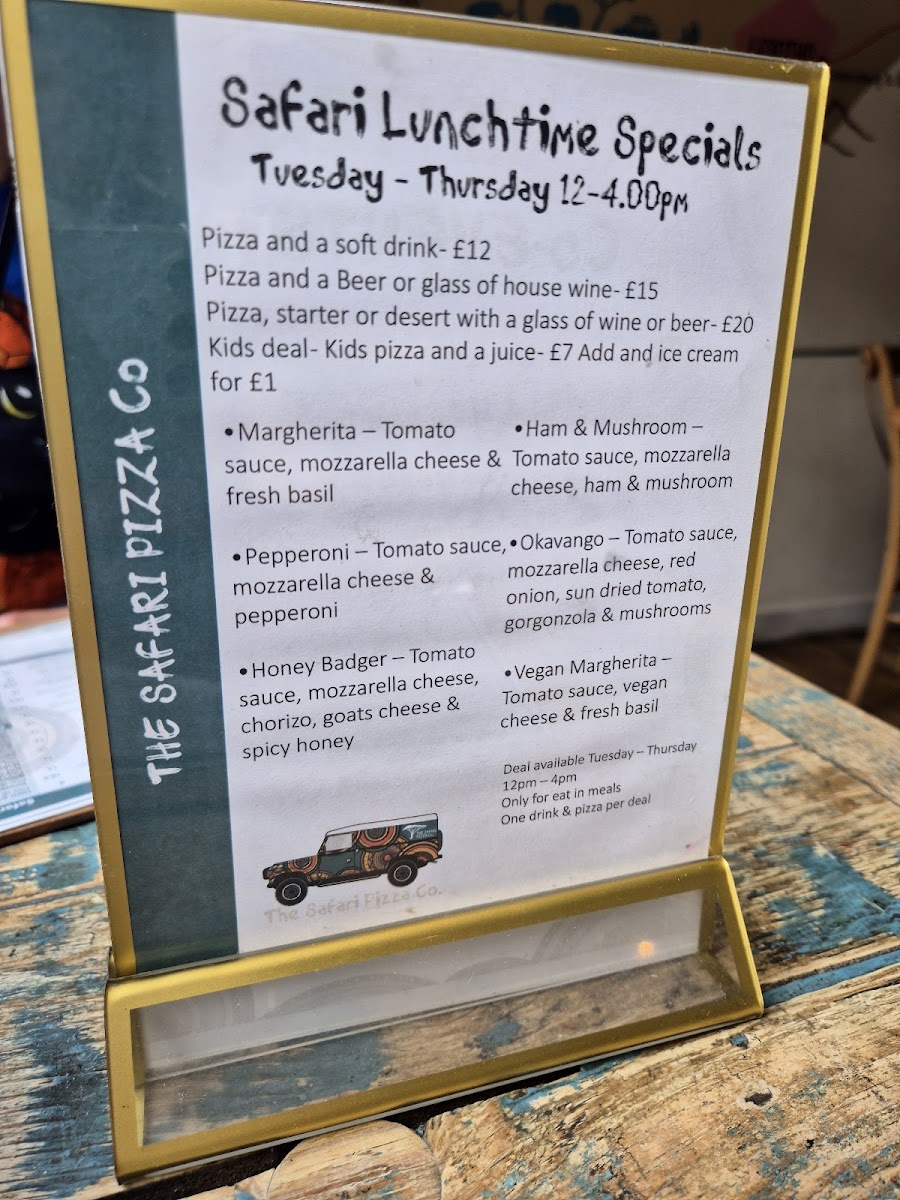 Safari Lunchtime Specials
Tuesday - Thursday 12-4.00pm
Pizza and a soft drink- £12
Pizza and a Beer or glass of house wine- £15
Pizza, starter or desert with a glass of wine or beer- £20
Kids deal- Kids pizza and a juice- £7 Add and ice cream
for £1
•Margherita – Tomato
sauce, mozzarella cheese &
fresh basil
•Pepperoni – Tomato sauce,
mozzarella cheese &
pepperoni
•Honey Badger – Tomato
sauce, mozzarella cheese,
chorizo, goats cheese &
spicy honey
•Ham & Mushroom –
Tomato sauce, mozzarella
cheese, ham & mushroom
•Okavango – Tomato sauce,
mozzarella cheese, red
onion, sun dried tomato,
gorgonzola & mushrooms
•Vegan Margherita –
Tomato sauce, vegan
cheese & fresh basil
Deal available Tuesday – Thursday
12pm – 4pm
Only for eat in meals
One drink & pizza per deal
The Safari Pizza Co.
THE SAFARI PIZZA CO